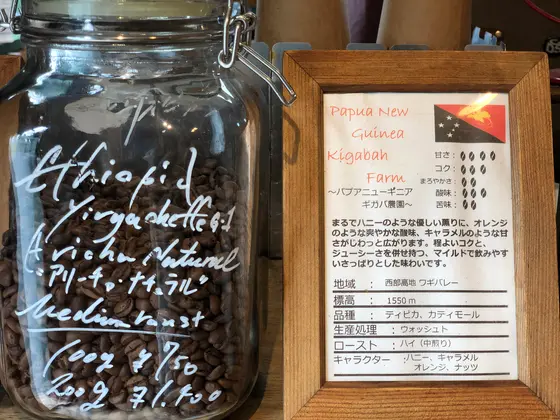 Ethiopia
Yirgacheffe G-1
Aricha Natural
"アリーチャ・ナチュラル"
Medium roast
100g ¥750
200g ¥1,400
Papua New
Guinea
Kigabah
Farm
〜パプアニューギニア
ギガバ農園〜
甘さ:
コク:
まろやかさ:
酸味:
苦味:
まるでハニーのような優しい薫りに、オレンジ
のような爽やかな酸味、キャラメルのような甘
さがじわっと広がります。程よいコクと、
ジューシーさを併せ持つ、マイルドで飲みやす
いさっぱりとした味わいです。
地域 : 西部高地 ワギバレー
標高 : 1550m
品種 : ティピカ、カティモール
生産処理 : ウォッシュト
ロースト : ハイ(中煎り)
キャラクター :ハニー、キャラメル
オレンジ、ナッツ